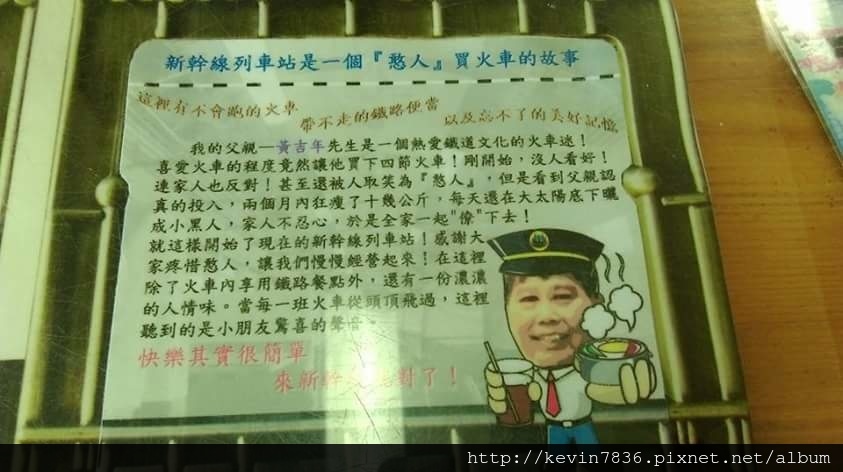 新幹線列車站是一個『憨人』買火車的故事
這裡有不會跑的火車
帶不走的鐵路便當
以及忘不了的美好記憶
我的父親—黃吉年先生是一個熱愛鐵道文化的火車迷！
喜愛火車的程度竟然讓他買下四節火車！剛開始，沒人看好！
連家人也反對！甚至還被人取笑為『憨人』，但是看到父親認
真的投入，兩個月內狂瘦了十幾公斤，每天還在大太陽底下曬
成小黑人，家人不忍心，於是全家一起"撩"下去！
就這樣開始了現在的新幹線列車站！感謝大
家疼惜憨人，讓我們慢慢經營起來！在這裡
除了火車內享用鐵路餐點外，還有一份濃濃
的人情味。當每一班火車從頭頂飛過，這裡
聽到的是小朋友驚喜的聲音。
快樂其實很簡單
來新幹線 對了！
http://kevin7836.pixnet.net/album